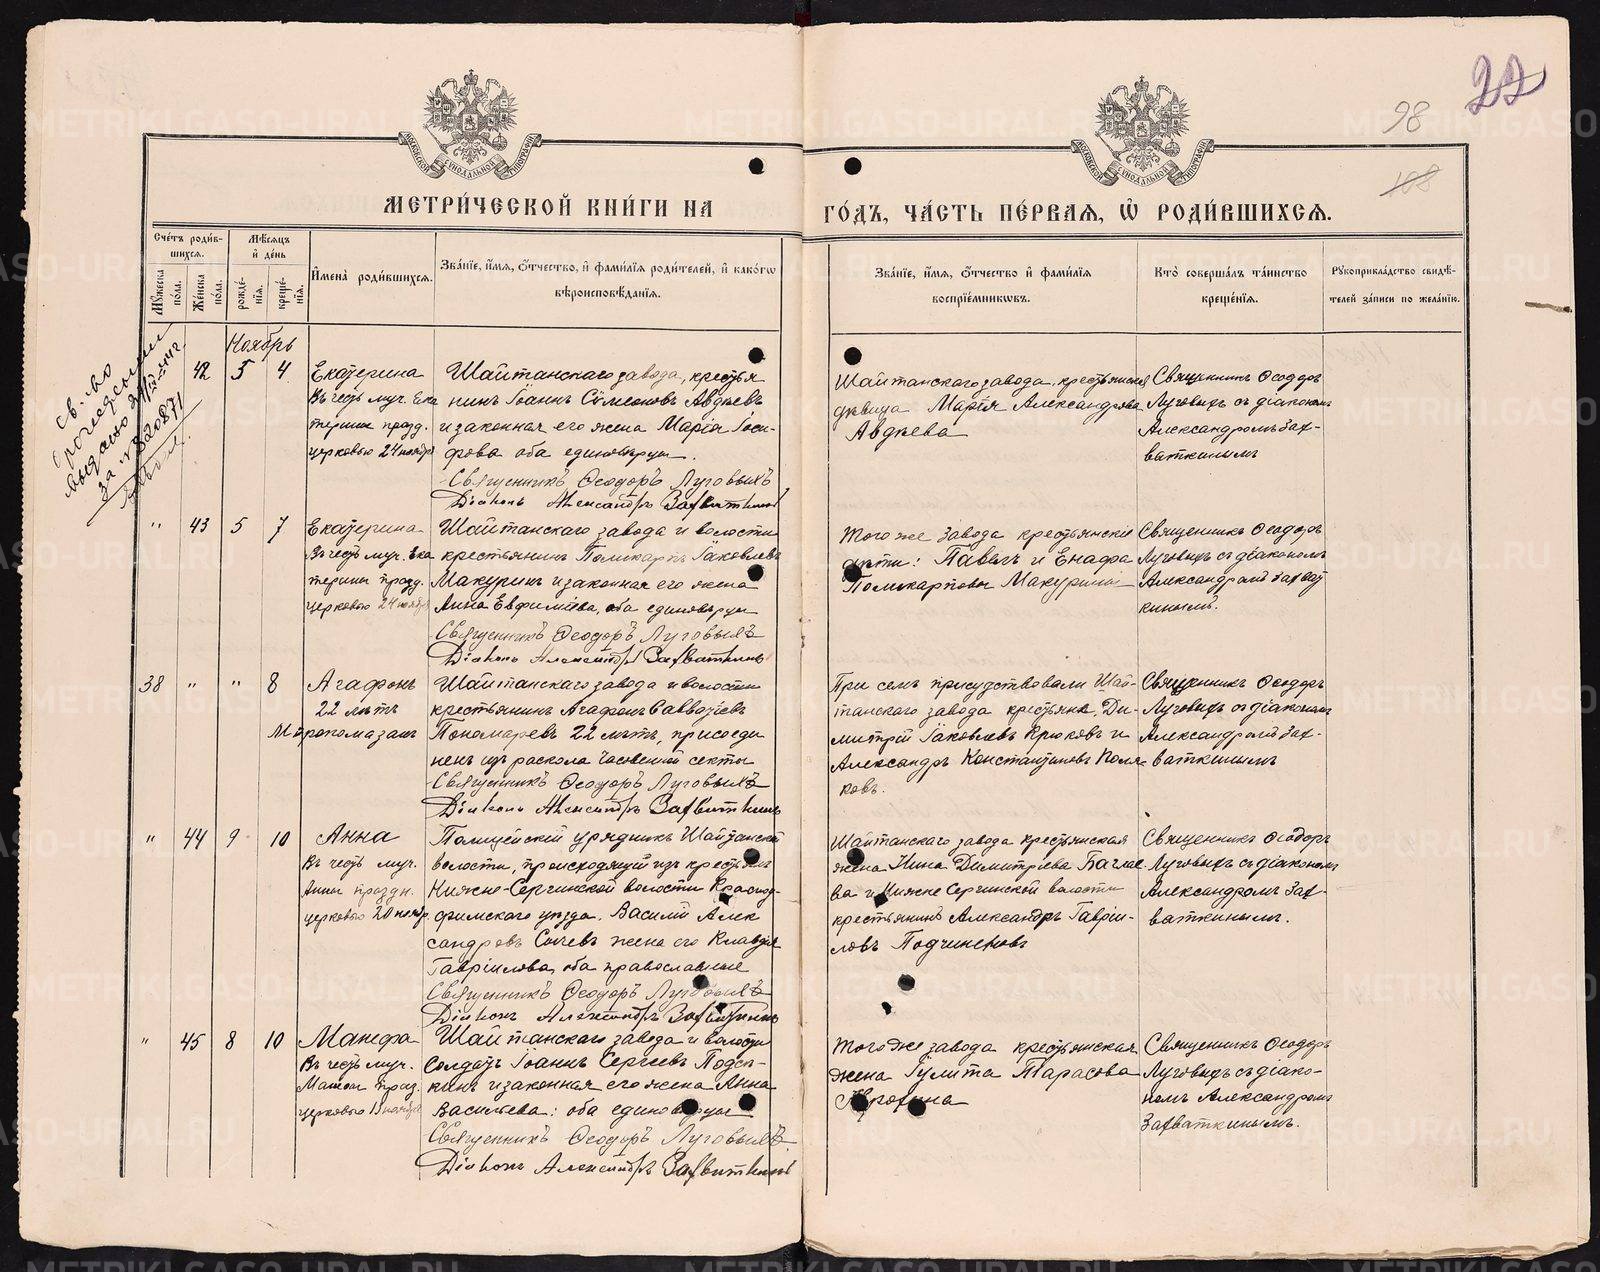 22
98
108
МЕТРИ́ЧЕСКОЙ КНИ́ГИ НА
ГО́ДЪ, ЧА́СТЬ ПЕ́РВАЯ, Ѡ РОДИ́ВШИХСЯ.
Сче́тъ роди́в-
шихся.
Мѣ́сяцъ
и҆ де́нь
Му́жеска по́ла.
Же́нска по́ла.
рожде́-
нїя.
креще́-
нїя.
И҆мена̀ роди́вшихся.
Зва́нїе, и҆́мя, ѻ҆́тчество, и҆ фами́лїя роди́телей, и҆ како́гѡ
вѣроисповѣ́данїя.
Зва́нїе, и҆́мя, ѻ҆́тчество и҆ фами́лїя
воспрїе́мниковъ.
Кто̀ соверша́лъ та́инство
креще́нїя.
Рꙋкоприкла́дство свидѣ́-
телей за́писи по жела́нїю.
Ноябрь
Св.-во
выдано
за № 820871
42 3 4
Екатерина
Въ честь муч. Ека
терины празд.
церковью 24 ноября
Шайтанскаго завода, крестья
нинъ Іоаннъ Сѵмеоновъ Авдѣевъ
и законная его жена Марія Іоси-
фова оба единовѣрцы.
Священникъ Ѳеодоръ Луговыхъ
Діаконъ Александръ Захваткинъ
Шайтанскаго завода, крестьянская
дѣвица Марія Александрова
Авдѣева
Священникъ Ѳеодоръ
Луговыхъ съ діакономъ
Александромъ Зах-
ваткинымъ
" 43 5 7
Екатерина
Въ честь муч. Ека
терины празд.
церковью 24 ноября
Шайтанскаго завода и волости
крестьянинъ Поликарпъ Іаковлевъ
Макуринъ и законная его жена
Анна Евфиміева, оба единовѣрцы
Священникъ Ѳеодоръ Луговыхъ
Діаконъ Александръ Захваткинъ
Того же завода крестьянскіе
дѣти: Павелъ и Енафа
Поликарповы Макурины
Священникъ Ѳеодоръ
Луговыхъ съ діакономъ
Александромъ Захват
кинымъ.
38 " " 8
Агафонъ
22 лѣтъ
Мѵропомазанъ
Шайтанскаго завода и волости
крестьянинъ Агафонъ Савватіевъ
Пономаревъ 22 лѣтъ, присоеди
ненъ изъ раскола часовенной секты
Священникъ Ѳеодоръ Луговыхъ
Діаконъ Александръ Захваткинъ
При семъ присудствовали Шай-
танскаго завода крестьяне, Ди-
митрій Іаковлевъ Крюковъ и
Александръ Константиновъ Поля-
ковъ.
Священникъ Ѳеодоръ
Луговыхъ съ діакономъ
Александромъ Зах-
ваткинымъ
" 44 9 10
Анна
Въ честь муч.
Анны праздн.
церковью 20 нояб.
Полицейскій урядникъ Шайтанской
волости, происходящій изъ крестьянъ
Нижне-Сергинской волости Красноу-
фимскаго уѣзда. Василій Алек
сандровъ Сычевъ жена его Клавдія
Гавріилова, оба православные
Священникъ Ѳеодоръ Луговыхъ
Діаконъ Александръ Захваткинъ
Шайтанскаго завода крестьянская
жена Нина Димитріева Баглае
ва и Нижне Сергинской волости
крестьянинъ Александръ Гавріи-
ловъ Подчиненовъ
Священникъ Ѳеодоръ
Луговыхъ съ діакономъ
Александромъ Зах-
ваткинымъ.
" 45 8 10
Манефа
Въ честь муч.
Манефы праз.
церковью 13 ноября
Шайтанскаго завода и волости
Солдатъ Іоаннъ Сергѣевъ Подсы-
кинъ и законная его жена Анна
Васильева: оба единовѣрцы
Священникъ Ѳеодоръ Луговыхъ
Діаконъ Александръ Захваткинъ
Того же завода крестьянская
жена Іулита Тарасова
Священникъ Ѳеодоръ
Луговыхъ съ діако-
номъ Александромъ
Захваткинымъ.